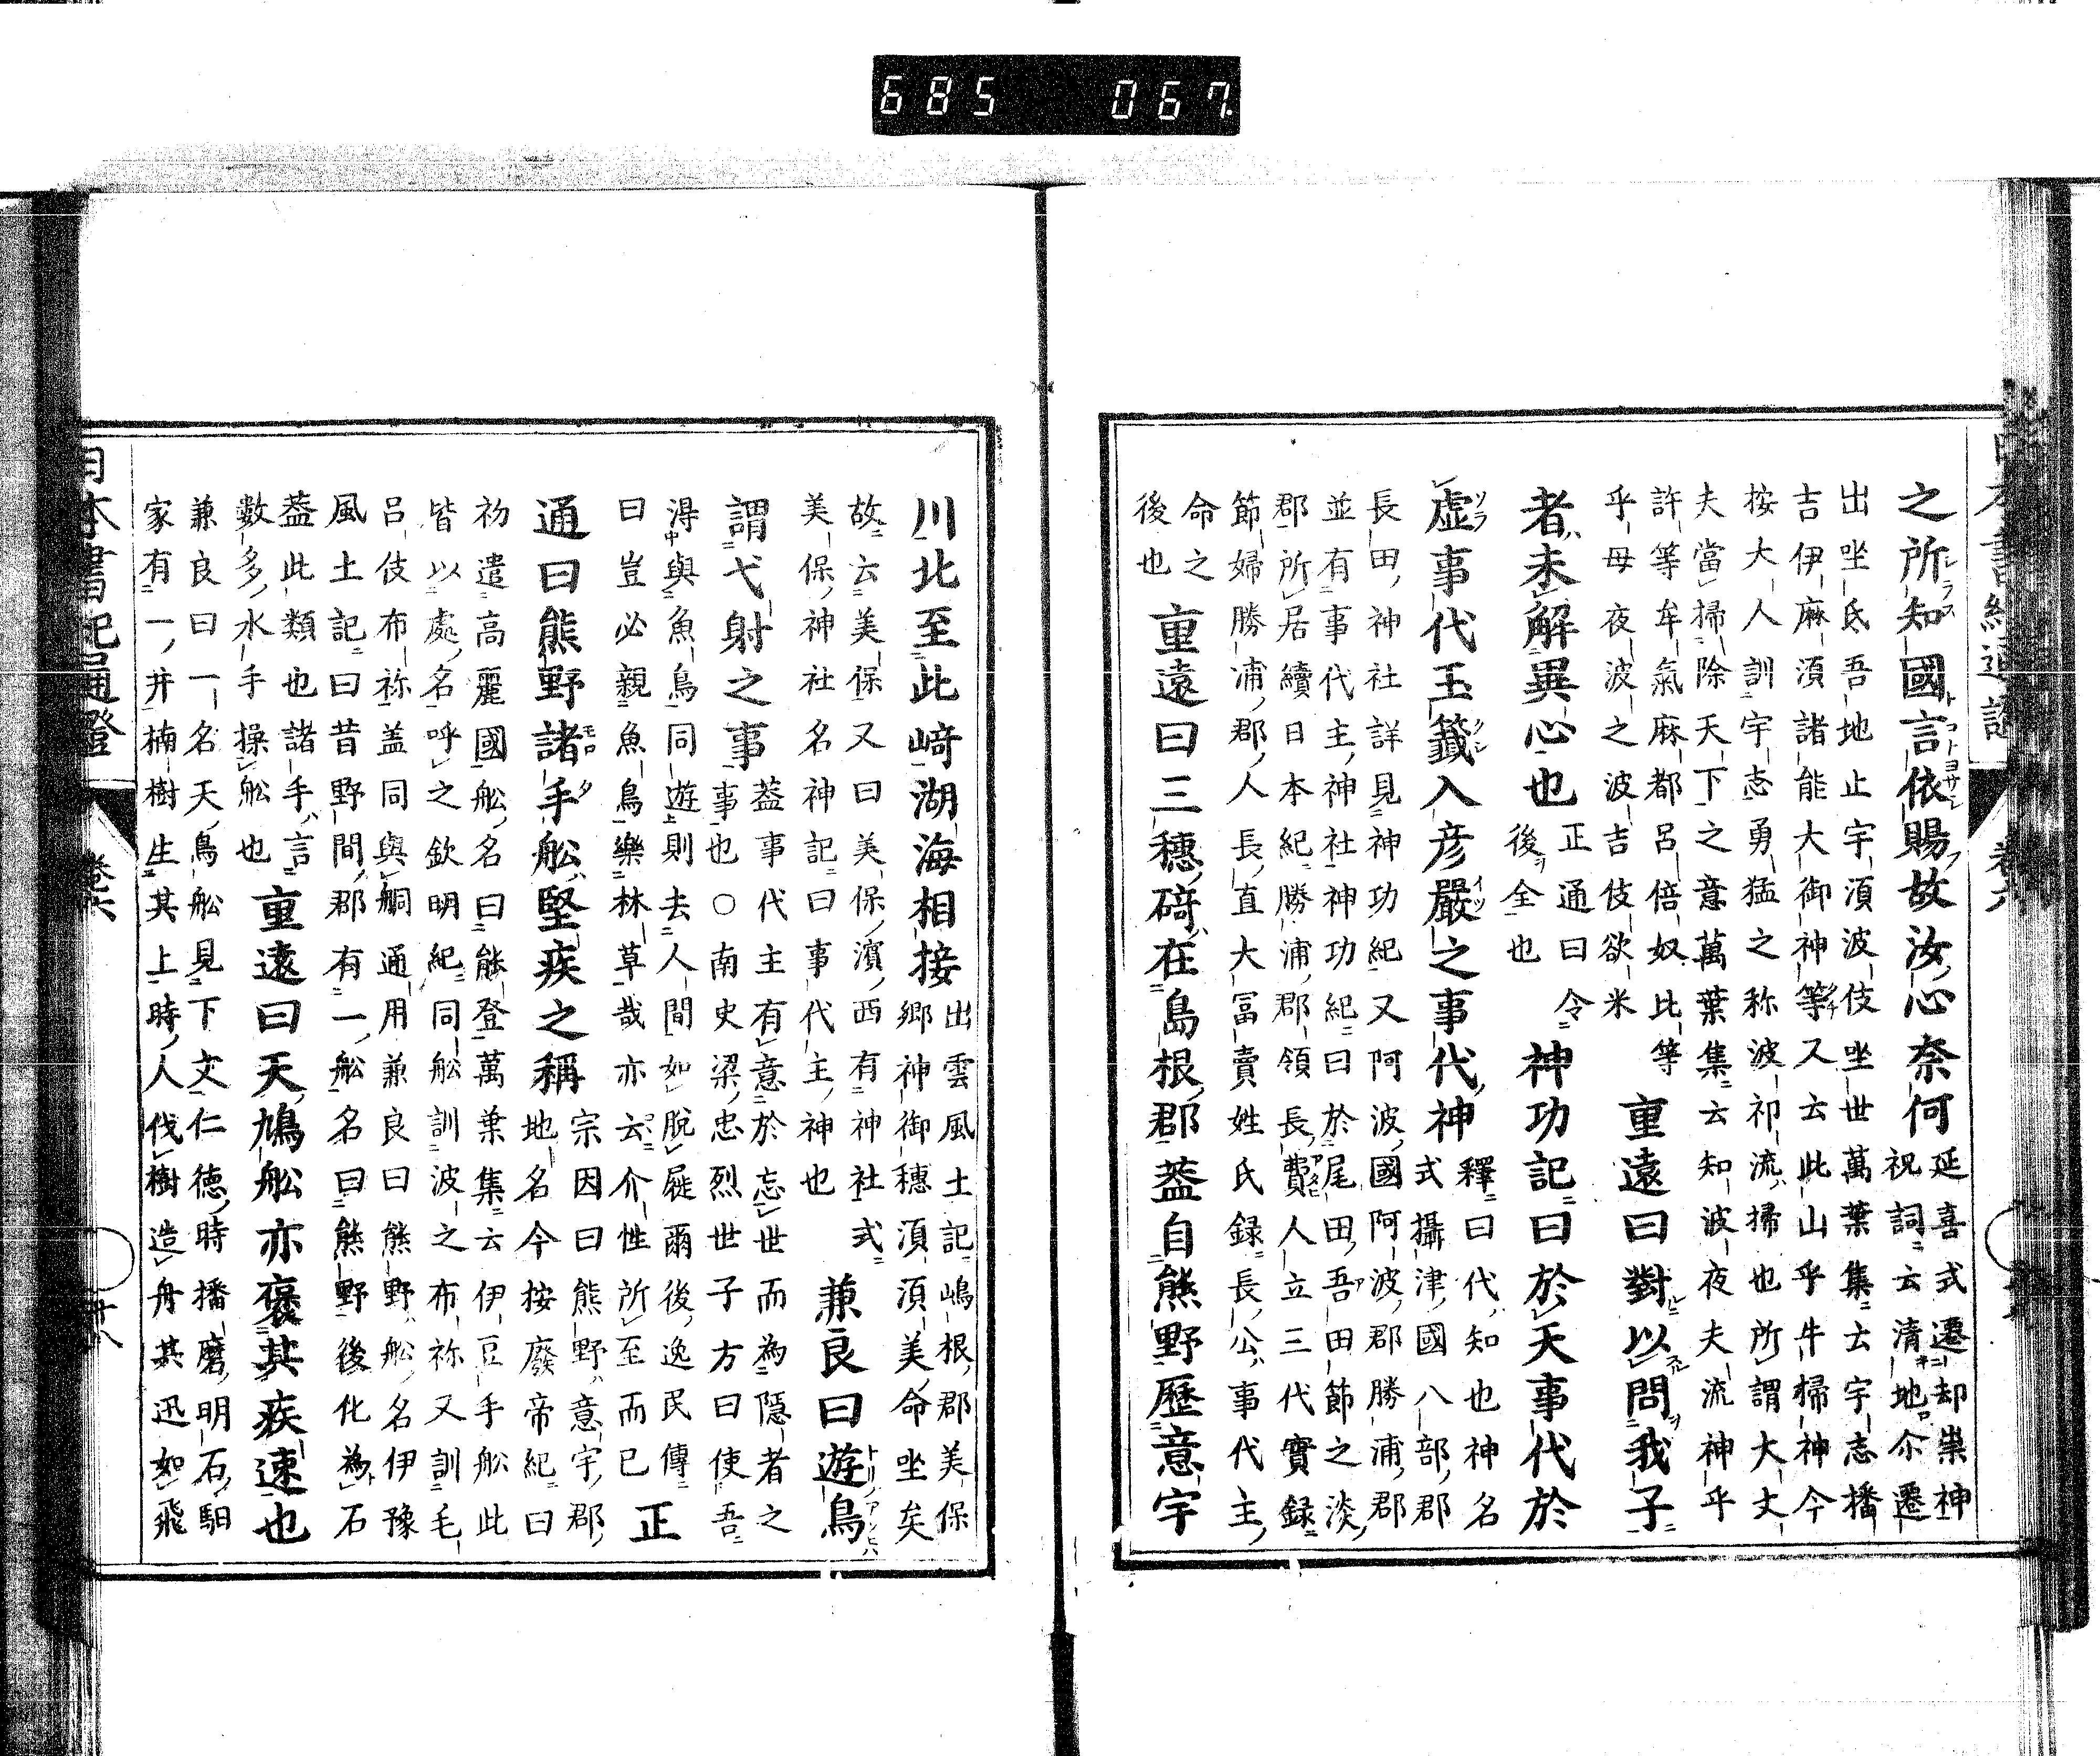 685 067
之所知國言依賜故汝心奈何
延喜式遷却崇神
祝詞云清地尒遷
出坐氐吾地止宇湏波伎坐世萬葉集云宇志播
吉伊麻湏諸能大御神等又云此山乎牛掃神今
按大人訓宇志勇猛之称波祁流掃也所謂大丈
夫當掃除天下之意萬葉集云知波夜夫流神乎
許等牟氣麻都呂倍奴比等
乎母夜波之波吉伎欲米
重遠曰對以問我子
者未解異心也
正通曰令
後全也
神功記曰於天事代於
虚事代玉籤入彦嚴之事代神
釋曰代知也神名
式攝津國八部郡
長田神社詳見神功紀又阿波國阿波郡勝浦郡
並有事代主神社神功紀曰於尾田吾田節之淡
郡所居續日本紀勝浦郡領長費人立三代實録
節婦勝浦郡人長直大冨賣姓氏録長公事代主
命之
後也
重遠曰三穗碕在島根郡葢自熊野歷意宇
川北至此﨑湖海相接
出雲風土記嶋根郡美保
郷神御穗湏湏美命坐矣
故云美保又曰美保濱西有神社式
美保神社名神記曰事代主神也
兼良曰遊鳥
謂弋射之事
葢事代主有意於忘世而為隱者之
事也○南史梁忠烈世子方曰使吾
淂與魚鳥同遊則去人間如脫屣爾後逸民傳
曰豈必親魚鳥樂林草哉亦云介性所至而已
正
通曰熊野諸手舩堅疾之稱
宗因曰熊野意宇郡
地名今按廢帝紀曰
初遣高麗國舩名曰能登萬葉集云伊豆手舩此
皆以處名呼之欽明紀同舩訓波之布祢又訓毛
呂伎布祢盖同與舸通用兼良曰熊野舩名伊豫
風土記曰昔野間郡有一舩名曰熊野後化為石
葢此類也諸手言
數多水手操舩也
重遠曰天鳩舩亦褒其疾速也
兼良曰一名天鳥舩見下文仁徳時播磨明石駅
家有一井楠樹生其上時人伐樹造舟其迅如飛
日本書紀通證
卷六